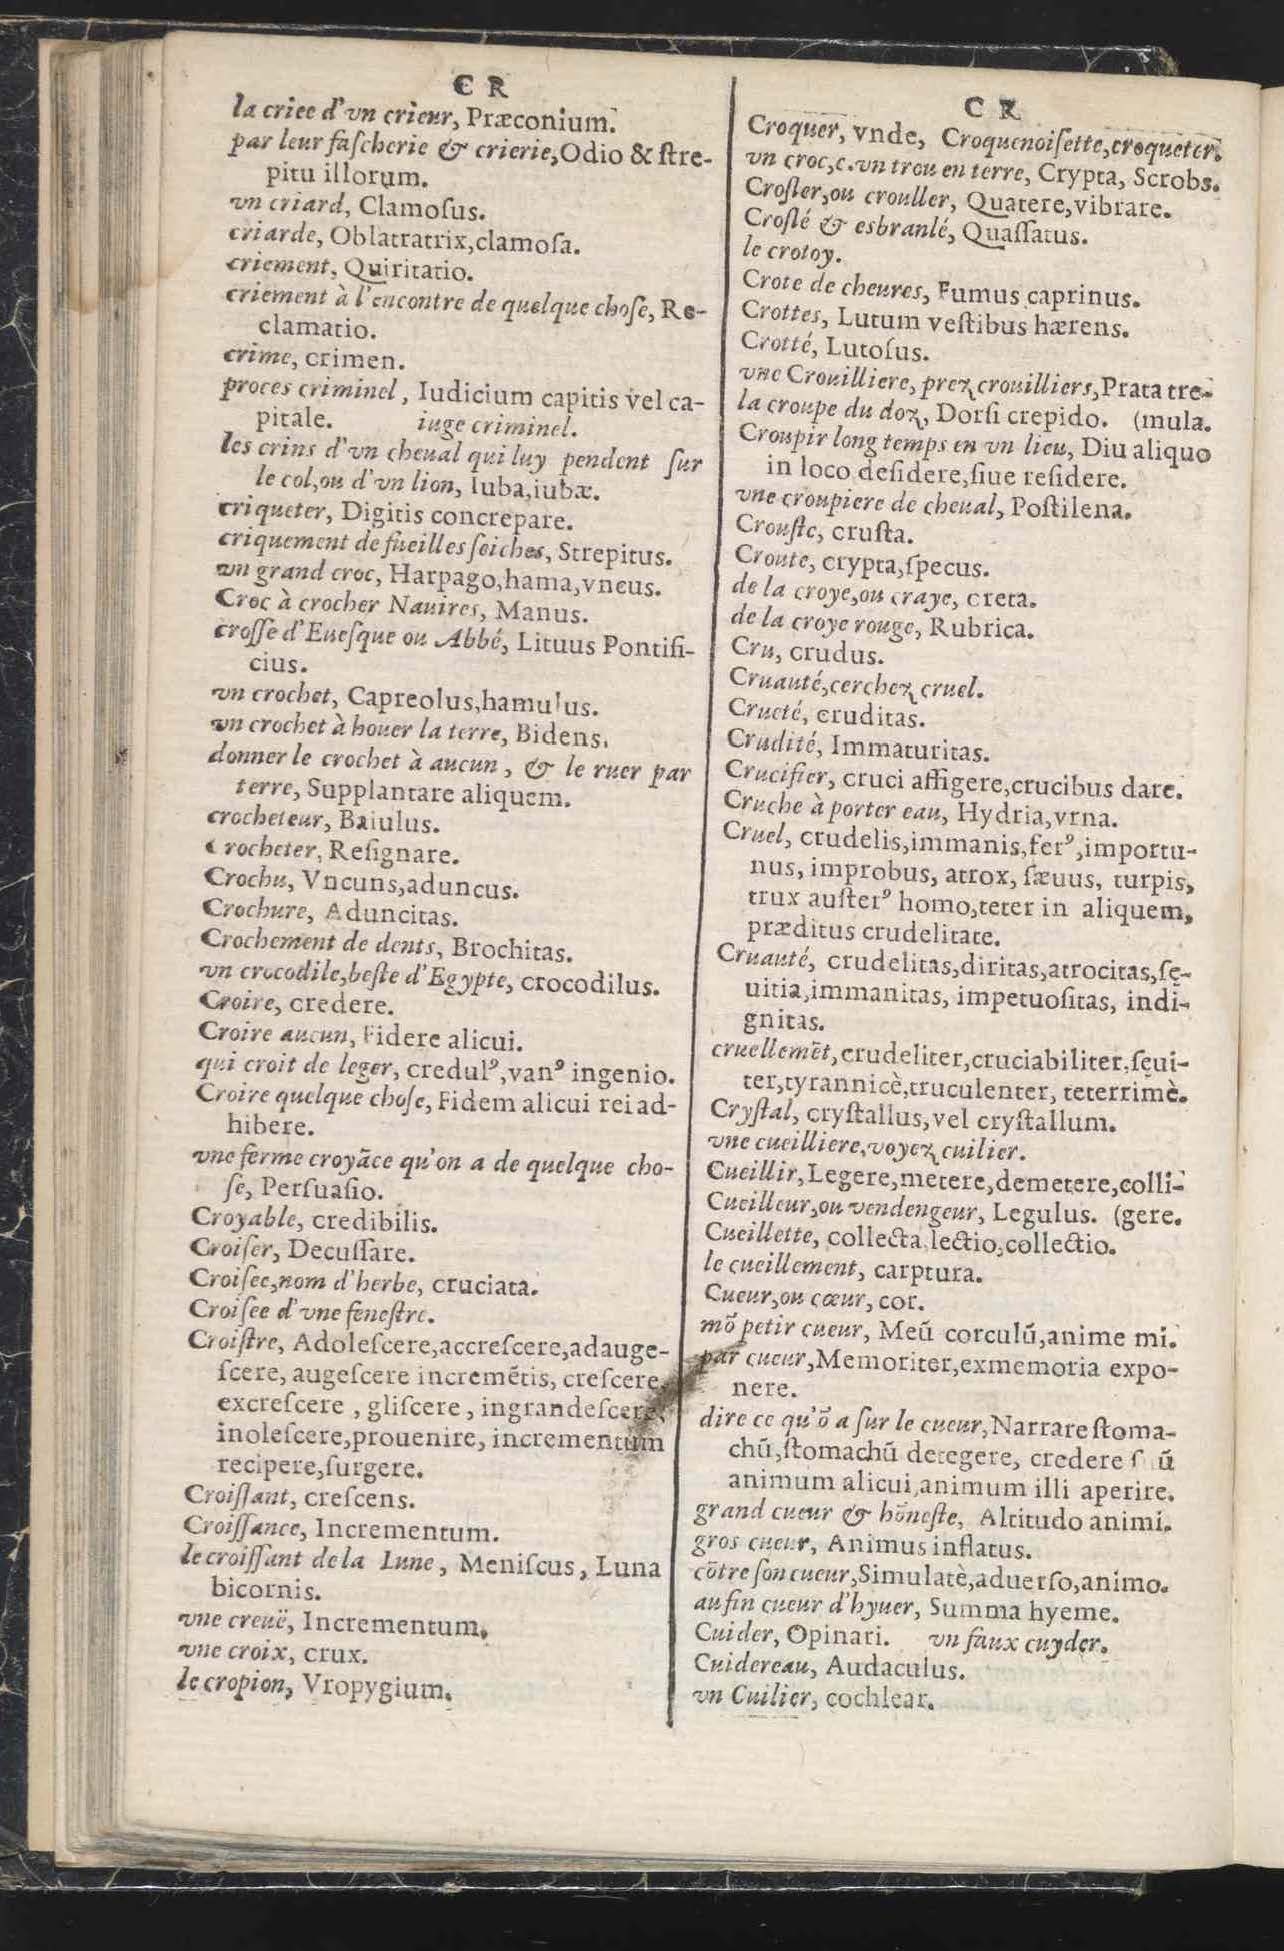 C R
la criee d'vn crieur, Præconium.
par leur faſcherie & crierie, Odio & ſtre-
pitu illorum.
vn criard, Clamoſus.
criarde, Oblatratrix, clamoſa.
criement, Quiritatio.
criement à l'encontre de quelque choſe, Re-
clamatio.
crime, crimen.
proces criminel, Iudicium capitis vel ca-
pitale. iuge criminel.
les crins d'vn cheual qui luy pendent ſur
le col, ou d'vn lion, Iuba, iubæ.
criqueter, Digitis concrepare.
criquement de fueilles ſeiches, Strepitus.
vn grand croc, Harpago, hama, vncus.
Croc à crocher Nauires, Manus.
croſſe d'Eueſque ou Abbé, Lituus Pontifi-
cius.
vn crochet, Capreolus, hamulus.
vn crochet à houer la terre, Bidens.
donner le crochet à aucun, & le ruer par
terre, Supplantare aliquem.
crocheteur, Baiulus.
Crocheter, Reſignare.
Crochu, Vncuns, aduncus.
Crochure, Aduncitas.
Crochement de dents, Brochitas.
vn crocodile, beſte d'Egypte, crocodilus.
Croire, credere.
Croire aucun, Fidere alicui.
qui croit de leger, credulꝰ, vanꝰ ingenio.
Croire quelque choſe, Fidem alicui rei ad-
hibere.
vne ferme croyāce qu'on a de quelque cho-
ſe, Perſuaſio.
Croyable, credibilis.
Croiſer, Decuſſare.
Croiſee, nom d'herbe, cruciata.
Croiſee d'vne feneſtre.
Croiſtre, Adoleſcere, accreſcere, adauge-
ſcere, augeſcere incremētis, creſcere,
excreſcere, gliſcere, ingrandeſcere,
inoleſcere, prouenire, incrementum
recipere, ſurgere.
Croiſſant, creſcens.
Croiſſance, Incrementum.
le croiſſant de la Lune, Meniſcus, Luna
bicornis.
vne creuë, Incrementum.
vne croix, crux.
le cropion, Vropygium.
C R
Croquer, vnde, Croquenoiſette, croqueter.
vn croc, c. vn trou en terre, Crypta, Scrobs.
Croſler, ou crouller, Quatere, vibrare.
Croſlé & esbranlé, Quaſſatus.
le crotoy.
Crote de cheures, Fumus caprinus.
Crottes, Lutum veſtibus hærens.
Crotté, Lutoſus.
vne Crouilliere, prez crouilliers, Prata tre-
la croupe du doz, Dorſi crepido. (mula.
Croupir long temps en vn lieu, Diu aliquo
in loco deſidere, ſiue reſidere.
vne croupiere de cheual, Poſtilena.
Crouſte, cruſta.
Croute, crypta, ſpecus.
de la croye, ou craye, creta.
de la croye rouge, Rubrica.
Cru, crudus.
Cruauté, cerchez cruel.
Crueté, cruditas.
Crudité, Immaturitas.
Crucifier, cruci affigere, crucibus dare.
Cruche à porter eau, Hydria, vrna.
Cruel, crudelis, immanis, ferꝰ, importu-
nus, improbus, atrox, ſæuus, turpis,
trux auſterꝰ homo, teter in aliquem,
præditus crudelitate.
Cruauté, crudelitas, diritas, atrocitas, ſę-
uitia, immanitas, impetuoſitas, indi-
gnitas.
cruellemēt, crudeliter, cruciabiliter, ſęui-
ter, tyrannicè, truculenter, teterrimè.
Cryſtal, cryſtallus, vel cryſtallum.
vne cueilliere, voyez cuilier.
Cueillir, Legere, metere, demetere, colli-
Cueilleur, ou vendengeur, Legulus. (gere.
Cueillette, collecta, lectio, collectio.
le cueillement, carptura.
Cueur, ou cœur, cor.
mō petit cueur, Meū corculū, anime mi.
par cueur, Memoriter, exmemoria expo-
nere.
dire ce qu'ō a ſur le cueur, Narrare ſtoma-
chū, ſtomachū detegere, credere ſuū
animum alicui, animum illi aperire.
grand cueur & hōneſte, Altitudo animi.
gros cueur, Animus inflatus.
cōtre ſon cueur, Simulatè, aduerſo, animo.
au fin cueur d'hyuer, Summa hyeme.
Cuider, Opinari. vn faux cuyder.
Cuidereau, Audaculus.
vn Cuilier, cochlear.